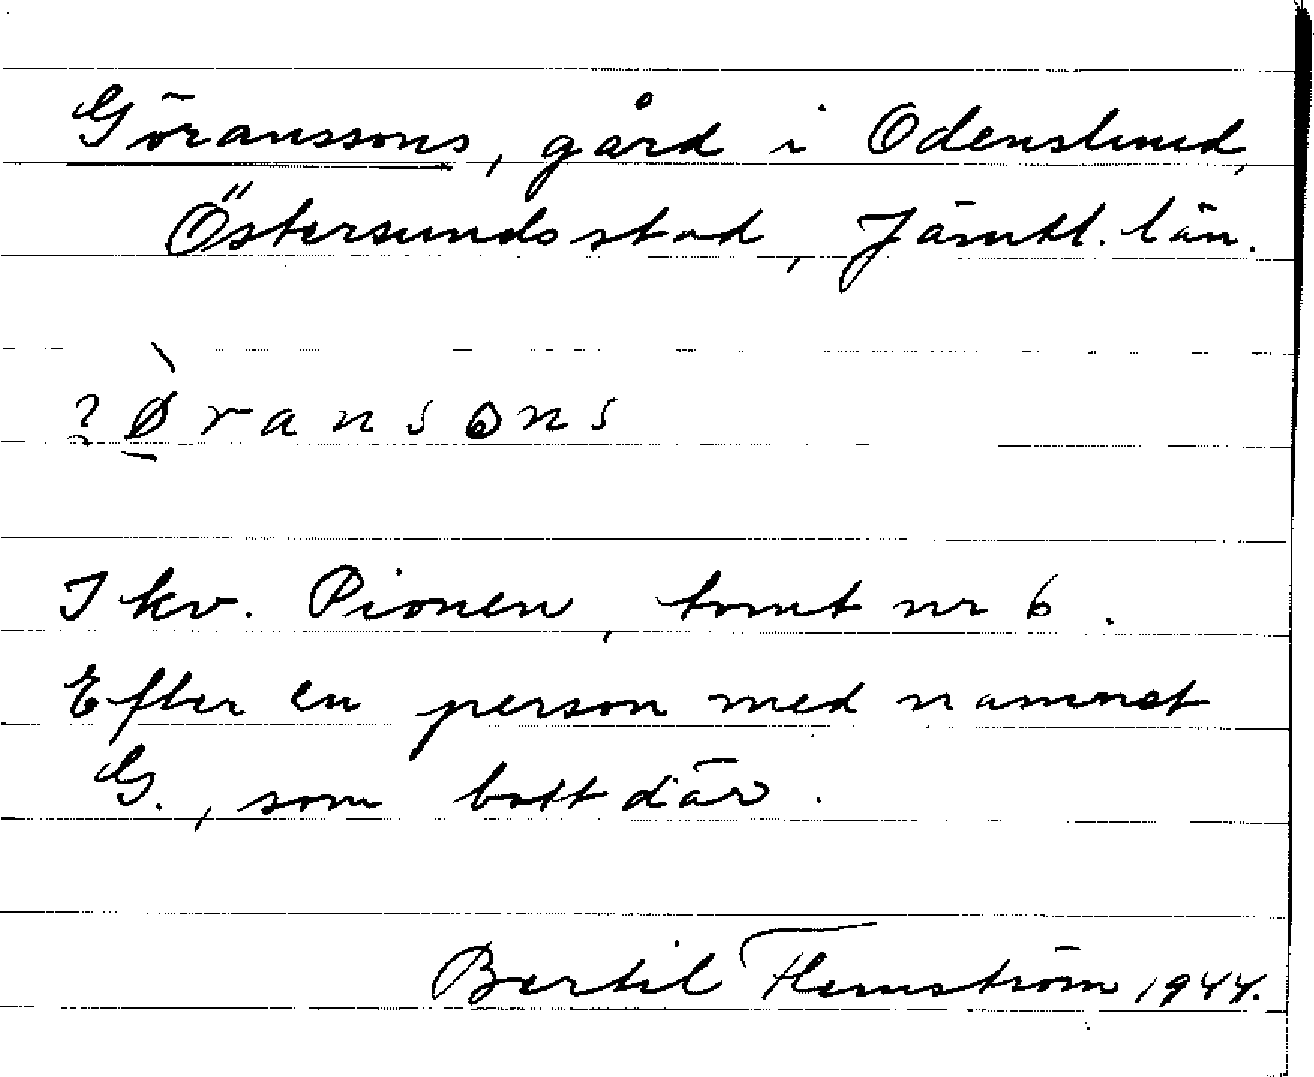 Göranssons, gård i Odenslund,
Östersunds stad, Jämtl. län.
I kv. Pionen, tomt nr 6.
Efter en person med namnet
G., som bott där.
Bertil Flemström 1944.